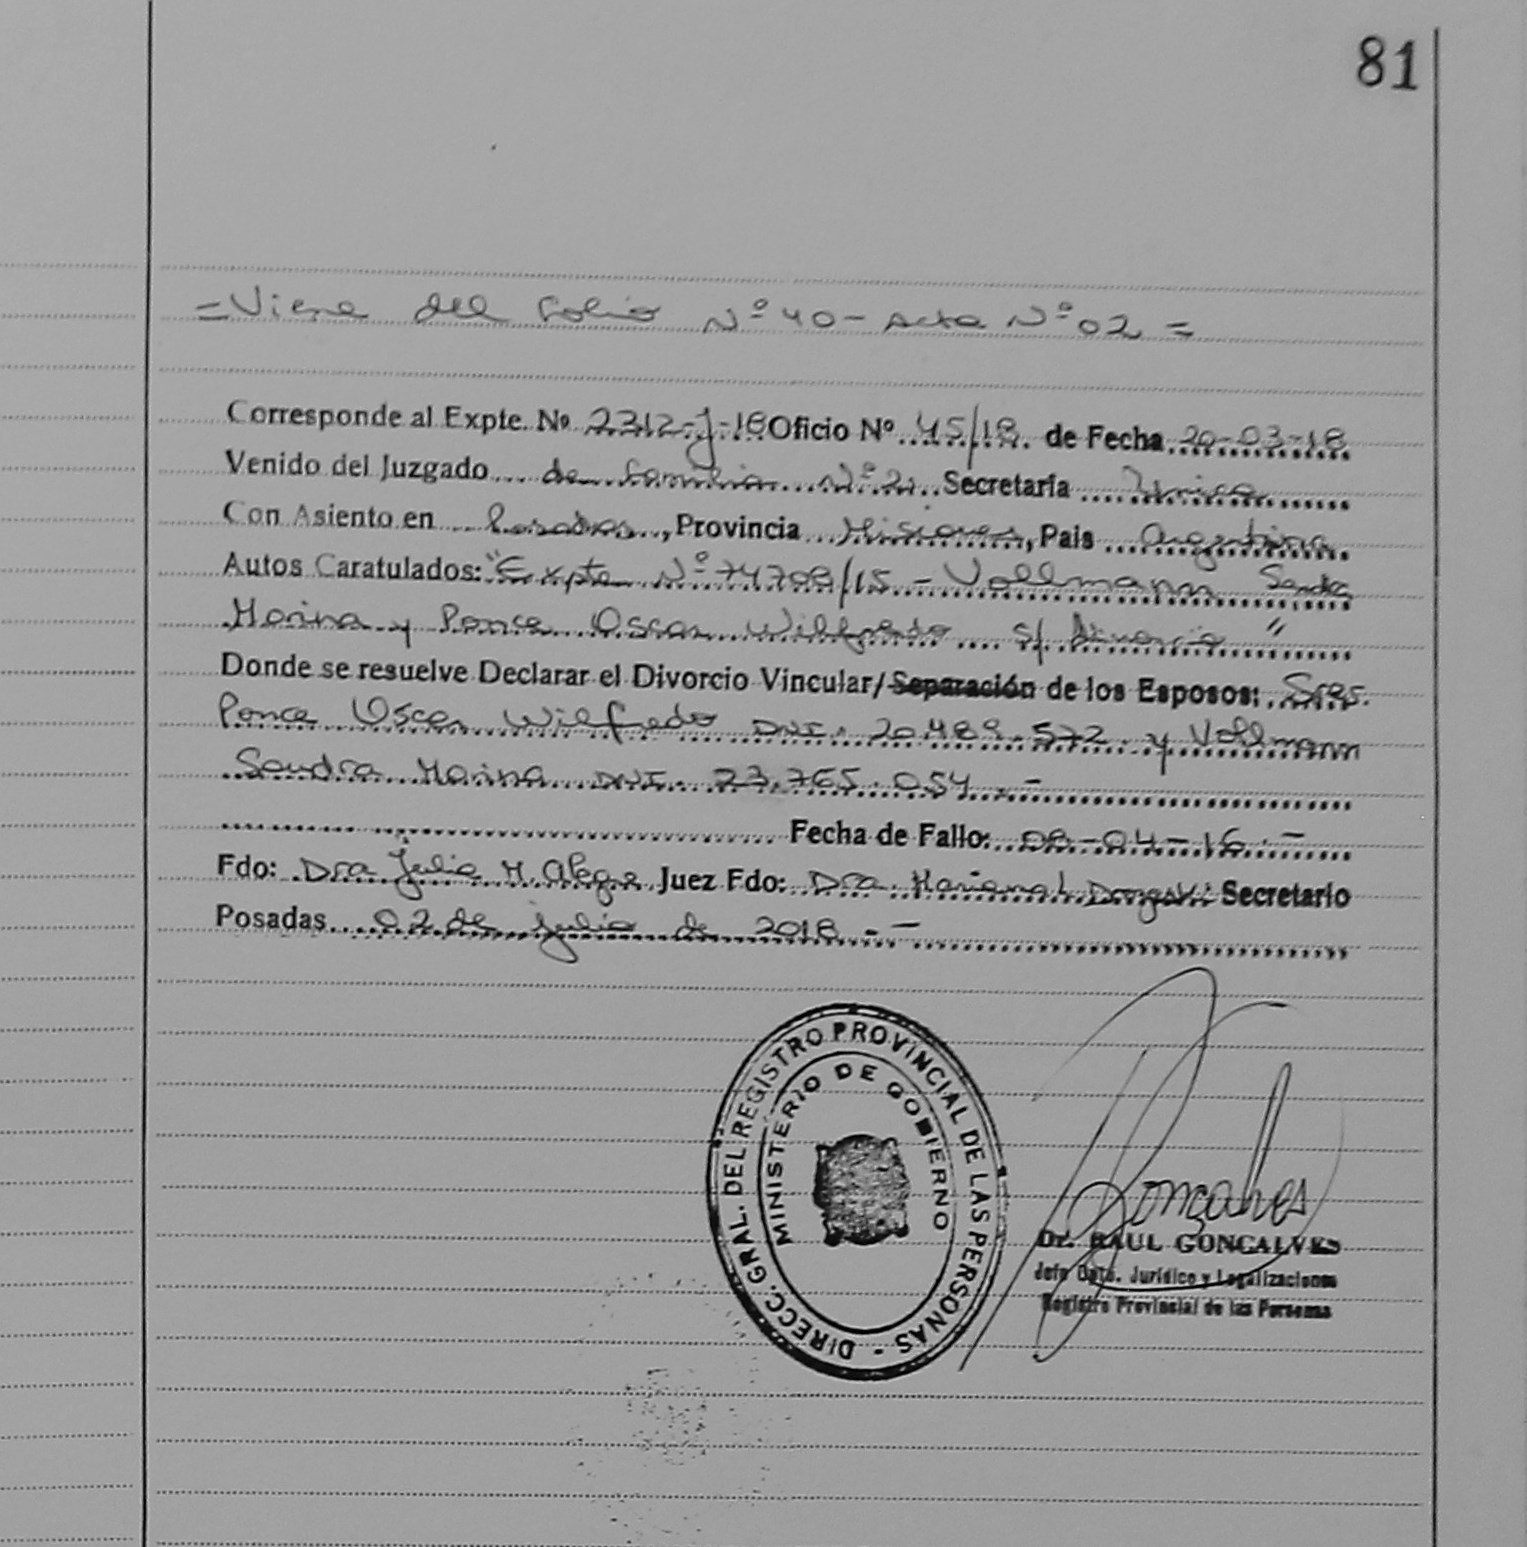 81
= Viene del folio Nº 40 - Acta Nº 02 =
Corresponde al Expte. Nº 2312-J-18 Oficio Nº 45/18 de Fecha 20-03-18
Venido del Juzgado de familia Nº 2. Secretaría Unica
Con Asiento en Posadas, Provincia Misiones, Pais Argentina
Autos Caratulados: "Expte Nº 74708/15 - Vollmann Sandra
Marina y Ponce Oscar Wilfredo s/ Divorcio"
Donde se resuelve Declarar el Divorcio Vincular/Separación de los Esposos: Sres.
Ponce Oscar Wilfredo DNI. 20.489.572 y Vollmann
Sandra Marina DNI. 23.765.054.-
Fecha de Fallo: 08-04-16.-
Fdo: Dra Julia M. Alegre Juez Fdo: Dra. Mariana I. Secretario
Posadas 02 de julio de 2018.-
DIRECC. GRAL. DEL REGISTRO PROVINCIAL DE LAS PERSONAS -
MINISTERIO DE GOBIERNO
Gonçalves
Dr. RAUL GONCALVES
Jefe Dpto. Jurídico y Legalizaciones
Registro Provincial de las Personas